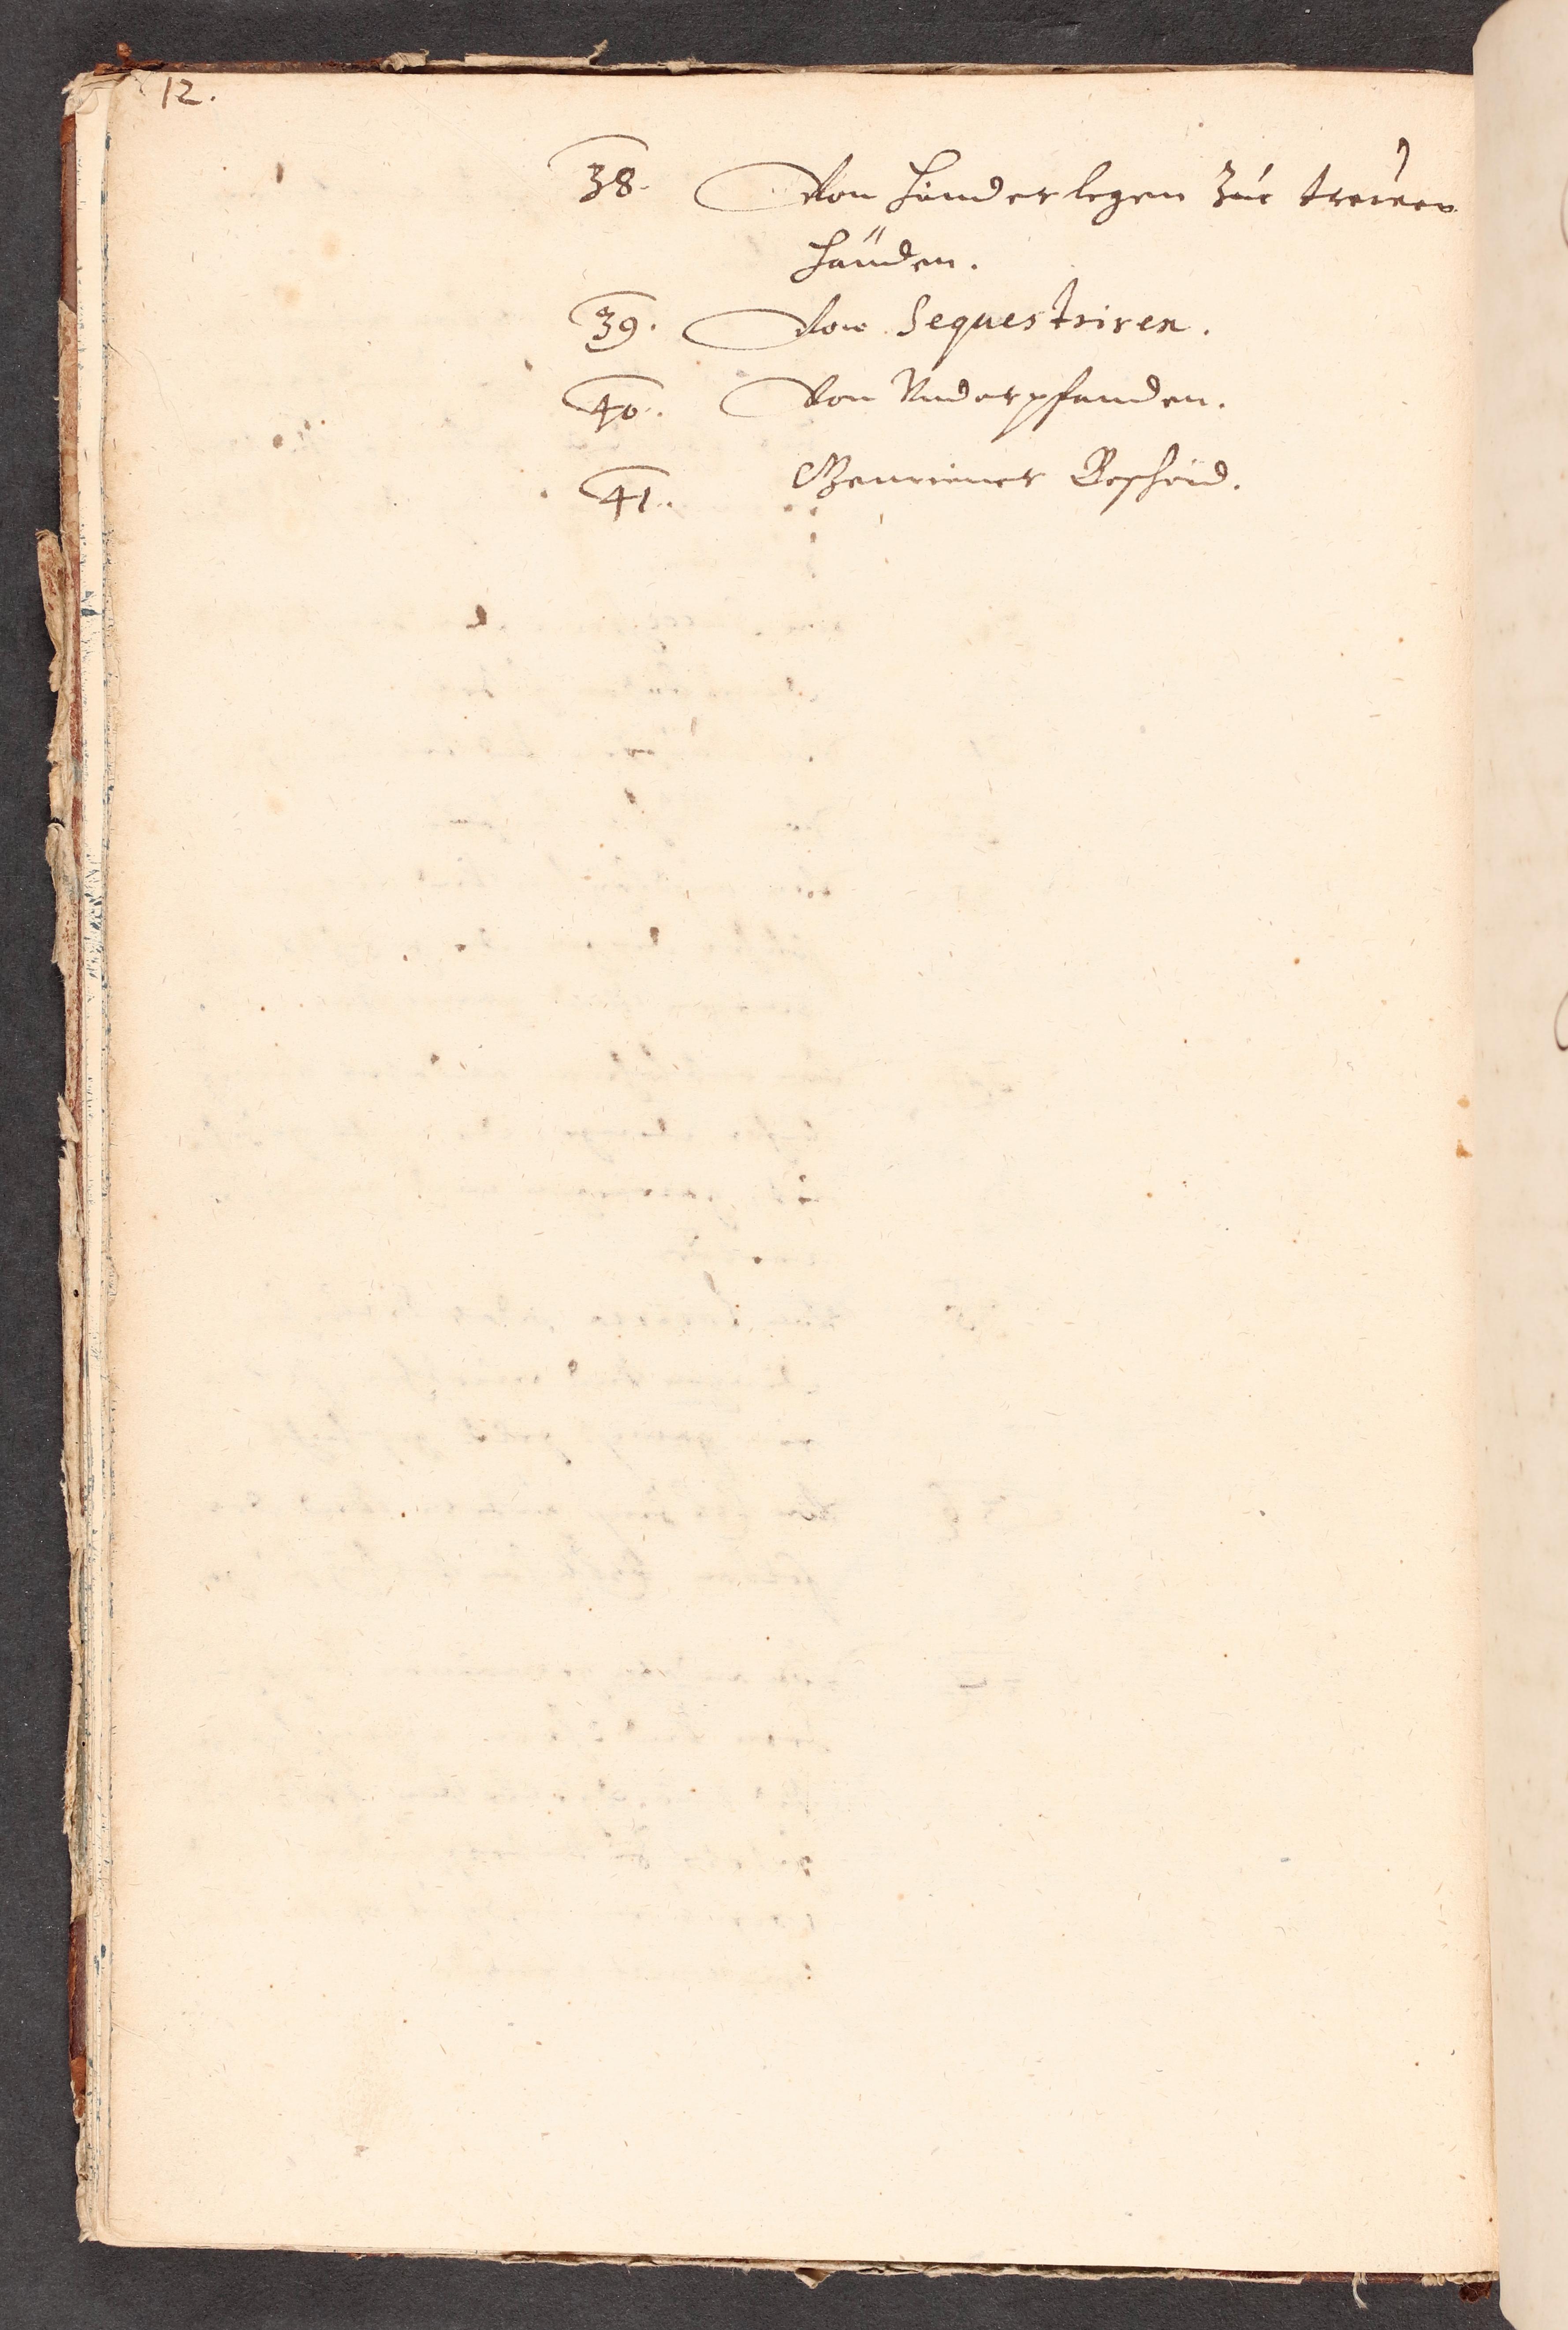 12.
38. Von hinderlegen zue treüen
händen.
39. Von Sequestriren.
40. Von Underpfanden.
41. Gemeiner Bescheid.